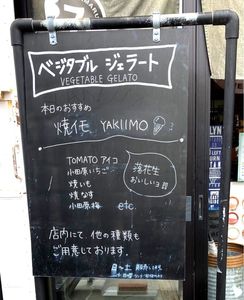 ベジタブル ジェラート
VEGETABLE GELATO
本日のおすすめ
焼イモ YAKIIMO
TOMATO アイコ
小田原いちご
焼いも
焼なす
小田原梅 etc
落花生
おいしいヨ!!!
店内にて、他の種類も
ご用意しております。